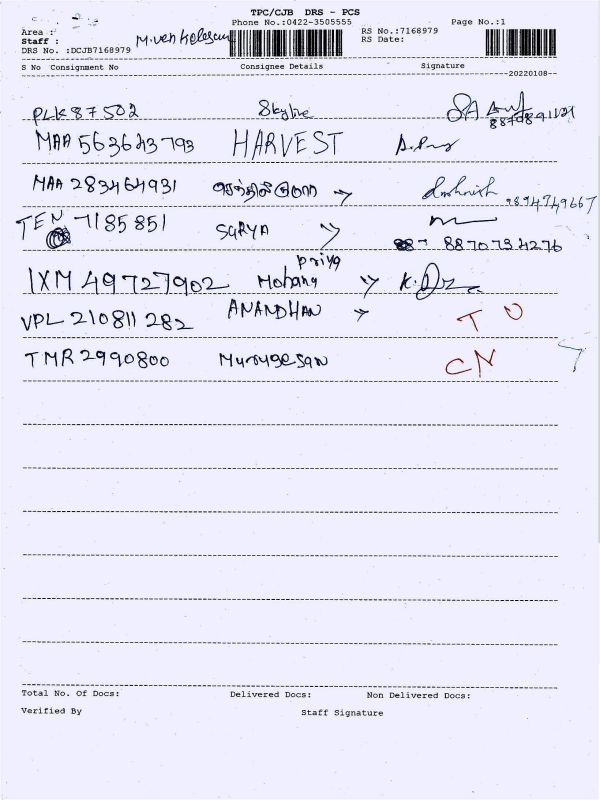 TPC/CJB DRS - PCS
Phone No.:0422-3505555 Page No.:1
Area :
Staff : RS No.:7168979
DRS No. :DCJB7168979 RS Date:
S No Consignment No Consignee Details Signature
20220108
PLK87502 Skyline
MAA 563643793 HARVEST
MAA 283464931 9894749667
TEN 7185851 SURYA 8870734276
IXM 49727902 Mohana priya
VPL 210811282 ANANDHAN TO
TMR 2990800 Murugesan CN
Total No. Of Docs: Delivered Docs: Non Delivered Docs:
Verified By Staff Signature